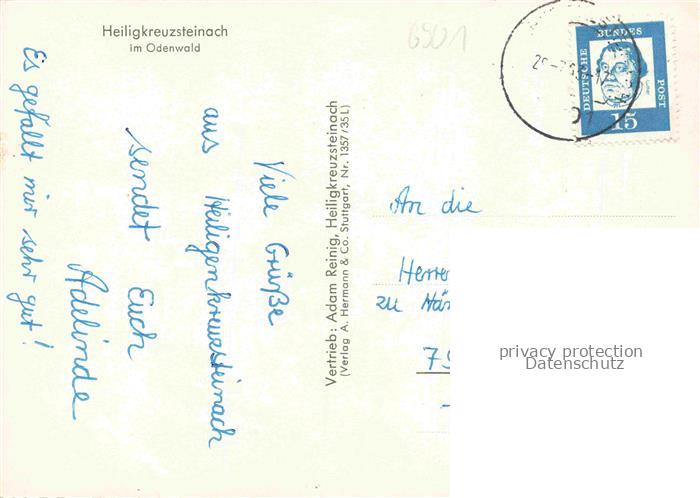 Heiligkreuzsteinach
im Odenwald
6901
Viele Grüße
aus Heiligenkreuzsteinach
sendet Euch
Adelinde
Es gefällt mir sehr gut!
Vertrieb: Adam Reinig, Heiligkreuzsteinach
(Verlag A. Hermann & Co. Stuttgart, Nr. 1357/35 L)
DEUTSCHE
BUNDES
POST
15
An die
Herren
zu
privacy protection
Datenschutz